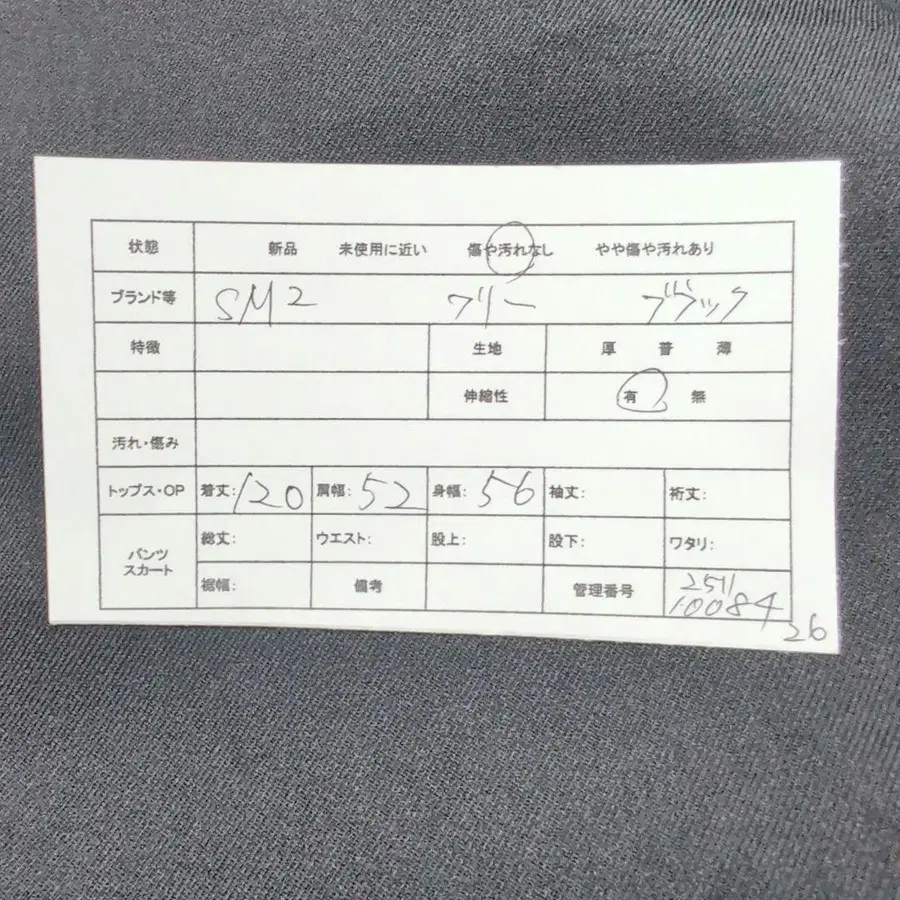 状態 新品 未使用に近い 傷や汚れなし やや傷や汚れあり
ブランド等 SM2 フリー ブラック
特徴 生地 厚 普 薄
伸縮性 有 無
汚れ・傷み
トップス・OP 着丈:120 肩幅:52 身幅:56 袖丈: 裄丈:
パンツ スカート 総丈: ウエスト: 股上: 股下: ワタリ:
裾幅: 備考 管理番号 2511
10084
26